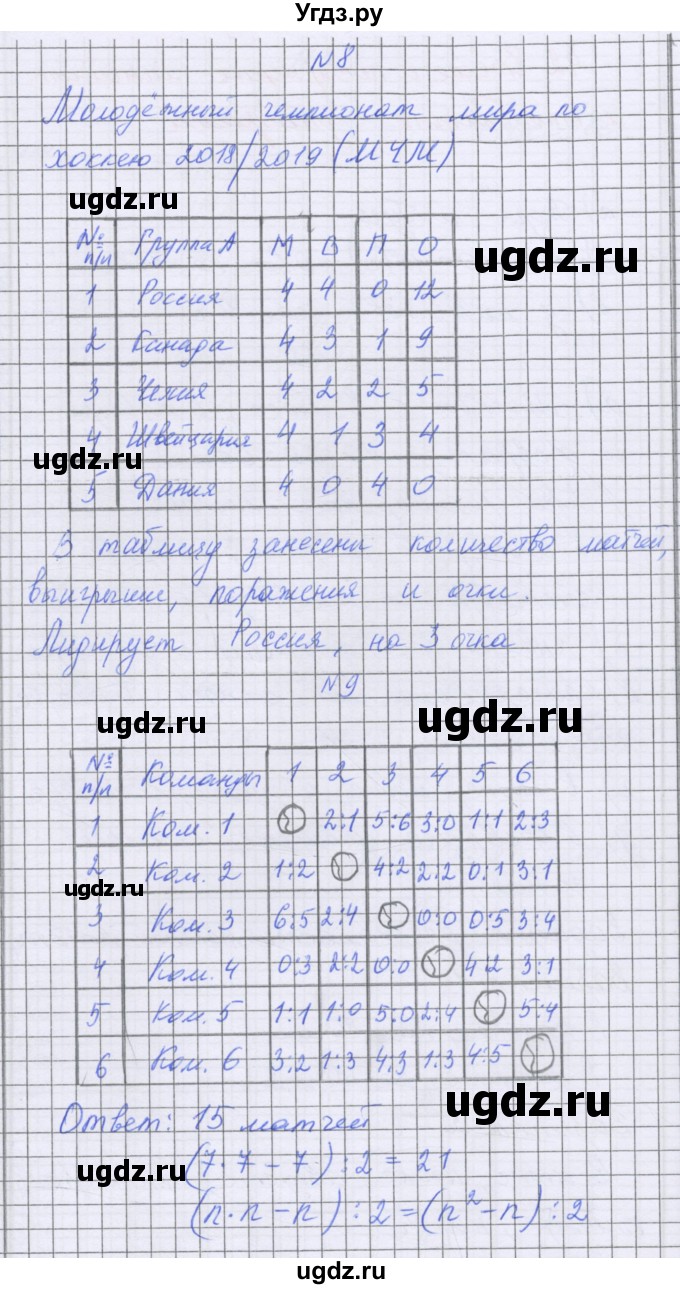 Угдз.ру
№8
Молодёжный чемпионат мира по
хоккею 2018/2019 (МЧМ)
ugdz.ru
№ п/п Группа А М В П О
ugdz.ru
1 Россия 4 4 0 12
2 Канада 4 3 1 9
3 Чехия 4 2 2 5
4 Швейцария 4 1 3 4
ugdz.ru
5 Дания 4 0 4 0
В таблицу занесены количество матчей,
выигрыши, поражения и очки.
Лидирует Россия, на 3 очка
№9
ugdz.ru ugdz.ru
№ п/п Команды 1 2 3 4 5 6
1 Ком. 1 2:1 5:6 3:0 1:1 2:3
2 Ком. 2 1:2 4:2 2:2 0:1 3:1
ugdz.ru
3 Ком. 3 6:5 2:4 0:0 0:5 3:4
4 Ком. 4 0:3 2:2 0:0 4:2 3:1
5 Ком. 5 1:1 1:0 5:0 2:4 5:4
6 Ком. 6 3:2 1:3 4:3 1:3 4:5
ugdz.ru
Ответ: 15 матчей
ugdz.ru
(7·7-7):2=21
(n·n-n):2=(n²-n):2
ugdz.ru